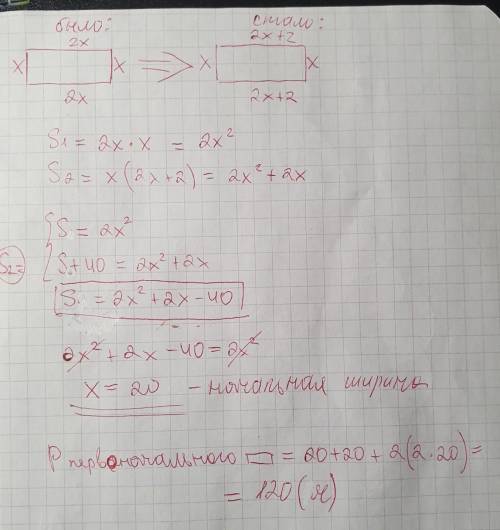 было: стало:
2x 2x+2
x x ⇒ x x
2x 2x+2
S₁ = 2x·x = 2x²
S₂ = x(2x+2) = 2x²+2x
S = 2x²
S₂= S₁+40 = 2x²+2x
S₁ = 2x²+2x-40
2x²+2x-40=2x²
x = 20 - начальная ширина
P первоначального ▭ = 20+20+2(2·20)=
= 120 (м)